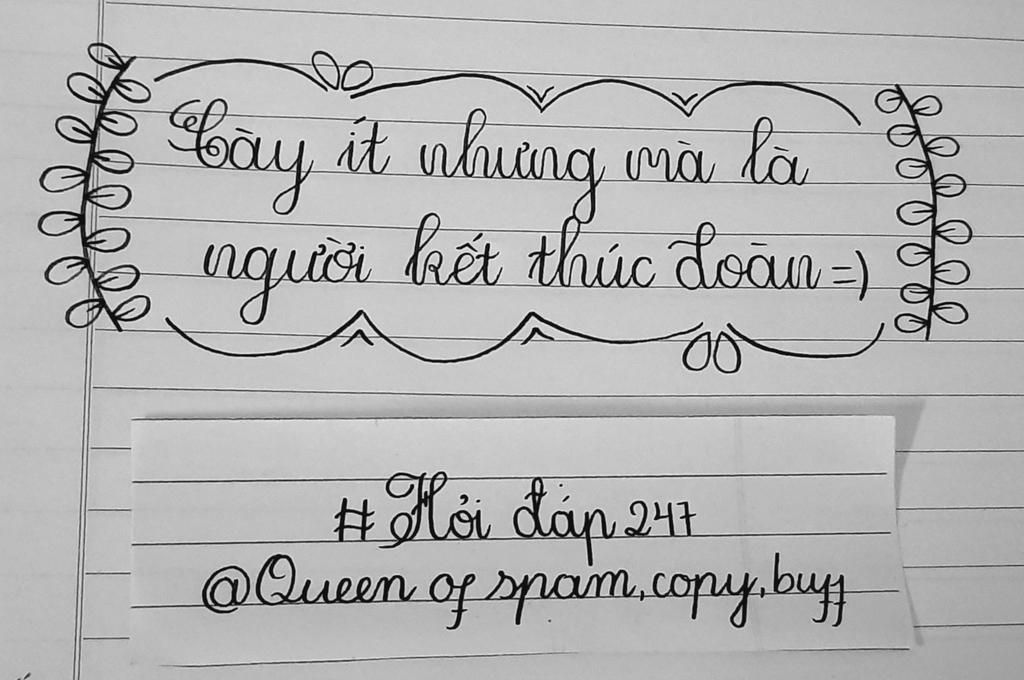 Cày ít nhưng mà là
người kết thúc đoàn =)
# Hỏi đáp 247
@Queen of spam, copy, buff